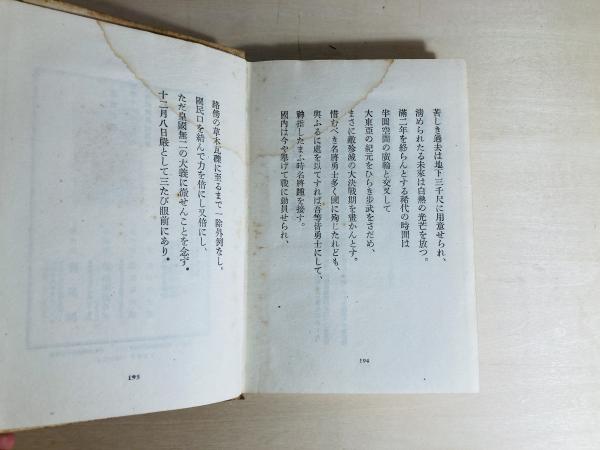 苦しき過去は地下三千尺に用意せられ、
淸められたる未來は白熱の光芒を放つ。
滿二年を終らんとする稀代の時間は
半圓空間の廣袤と交叉して
大東亞の紀元をひらき歩武をさだめ、
まさに敵殄滅の大決戰期を畫かんとす。
惜むべき名將勇士多く國に殉じたれども、
與ふるに處を以てすれば吾等皆勇士にして、
神指したまふ時名將踵を接す。
國內は今や擧げて戰に動員せられ、
194
路傍の草木瓦礫に至るまで一除外例なし。
國民口を結んで力を倍にし又倍にし、
ただ皇國無二の大義に徹せんことを念ず。
十二月八日嚴として三たび眼前にあり。
195